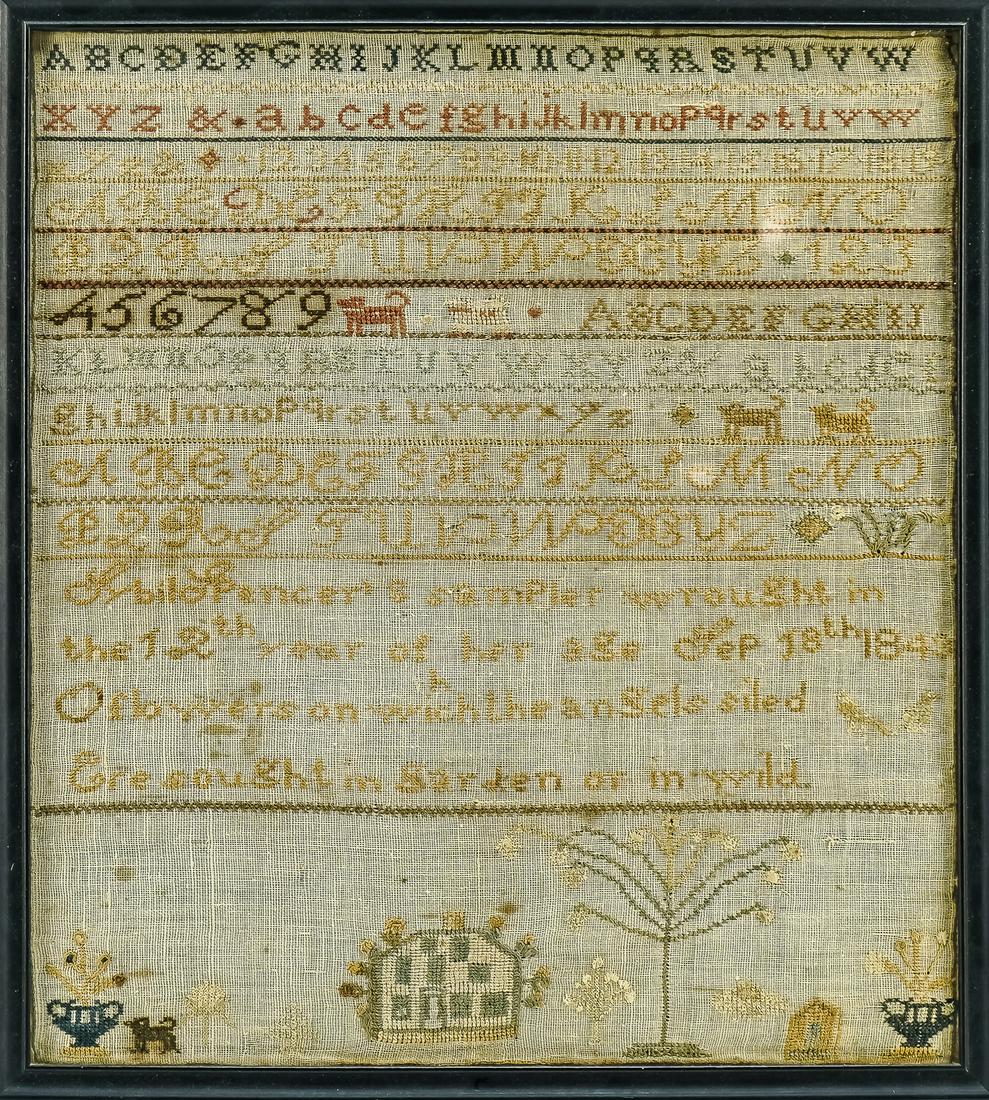 ABCDEFGHIJKLMNOPQRSTUVW
XYZ & abcdefghijklmnopqrstuvw
xyz & 1 2 3 4 5 6 7 8 9 10 11 12 13 14 15 16 17 18 19
ABCDEFGHIJKLMNO
PQRSTUVWXYZ 123
456789 ABCDEFGHIJ
KLMNOPQRSTUVWXYZ & abcdef
ghijklmnopqrstuvwxyz
ABCDEFGHIJKLMNO
PQRSTUVWXYZ
Spencer's sampler wrought in
the 12th year of her age Sep 18th
O flowers on which the angels
Ere sought in garden or in wild